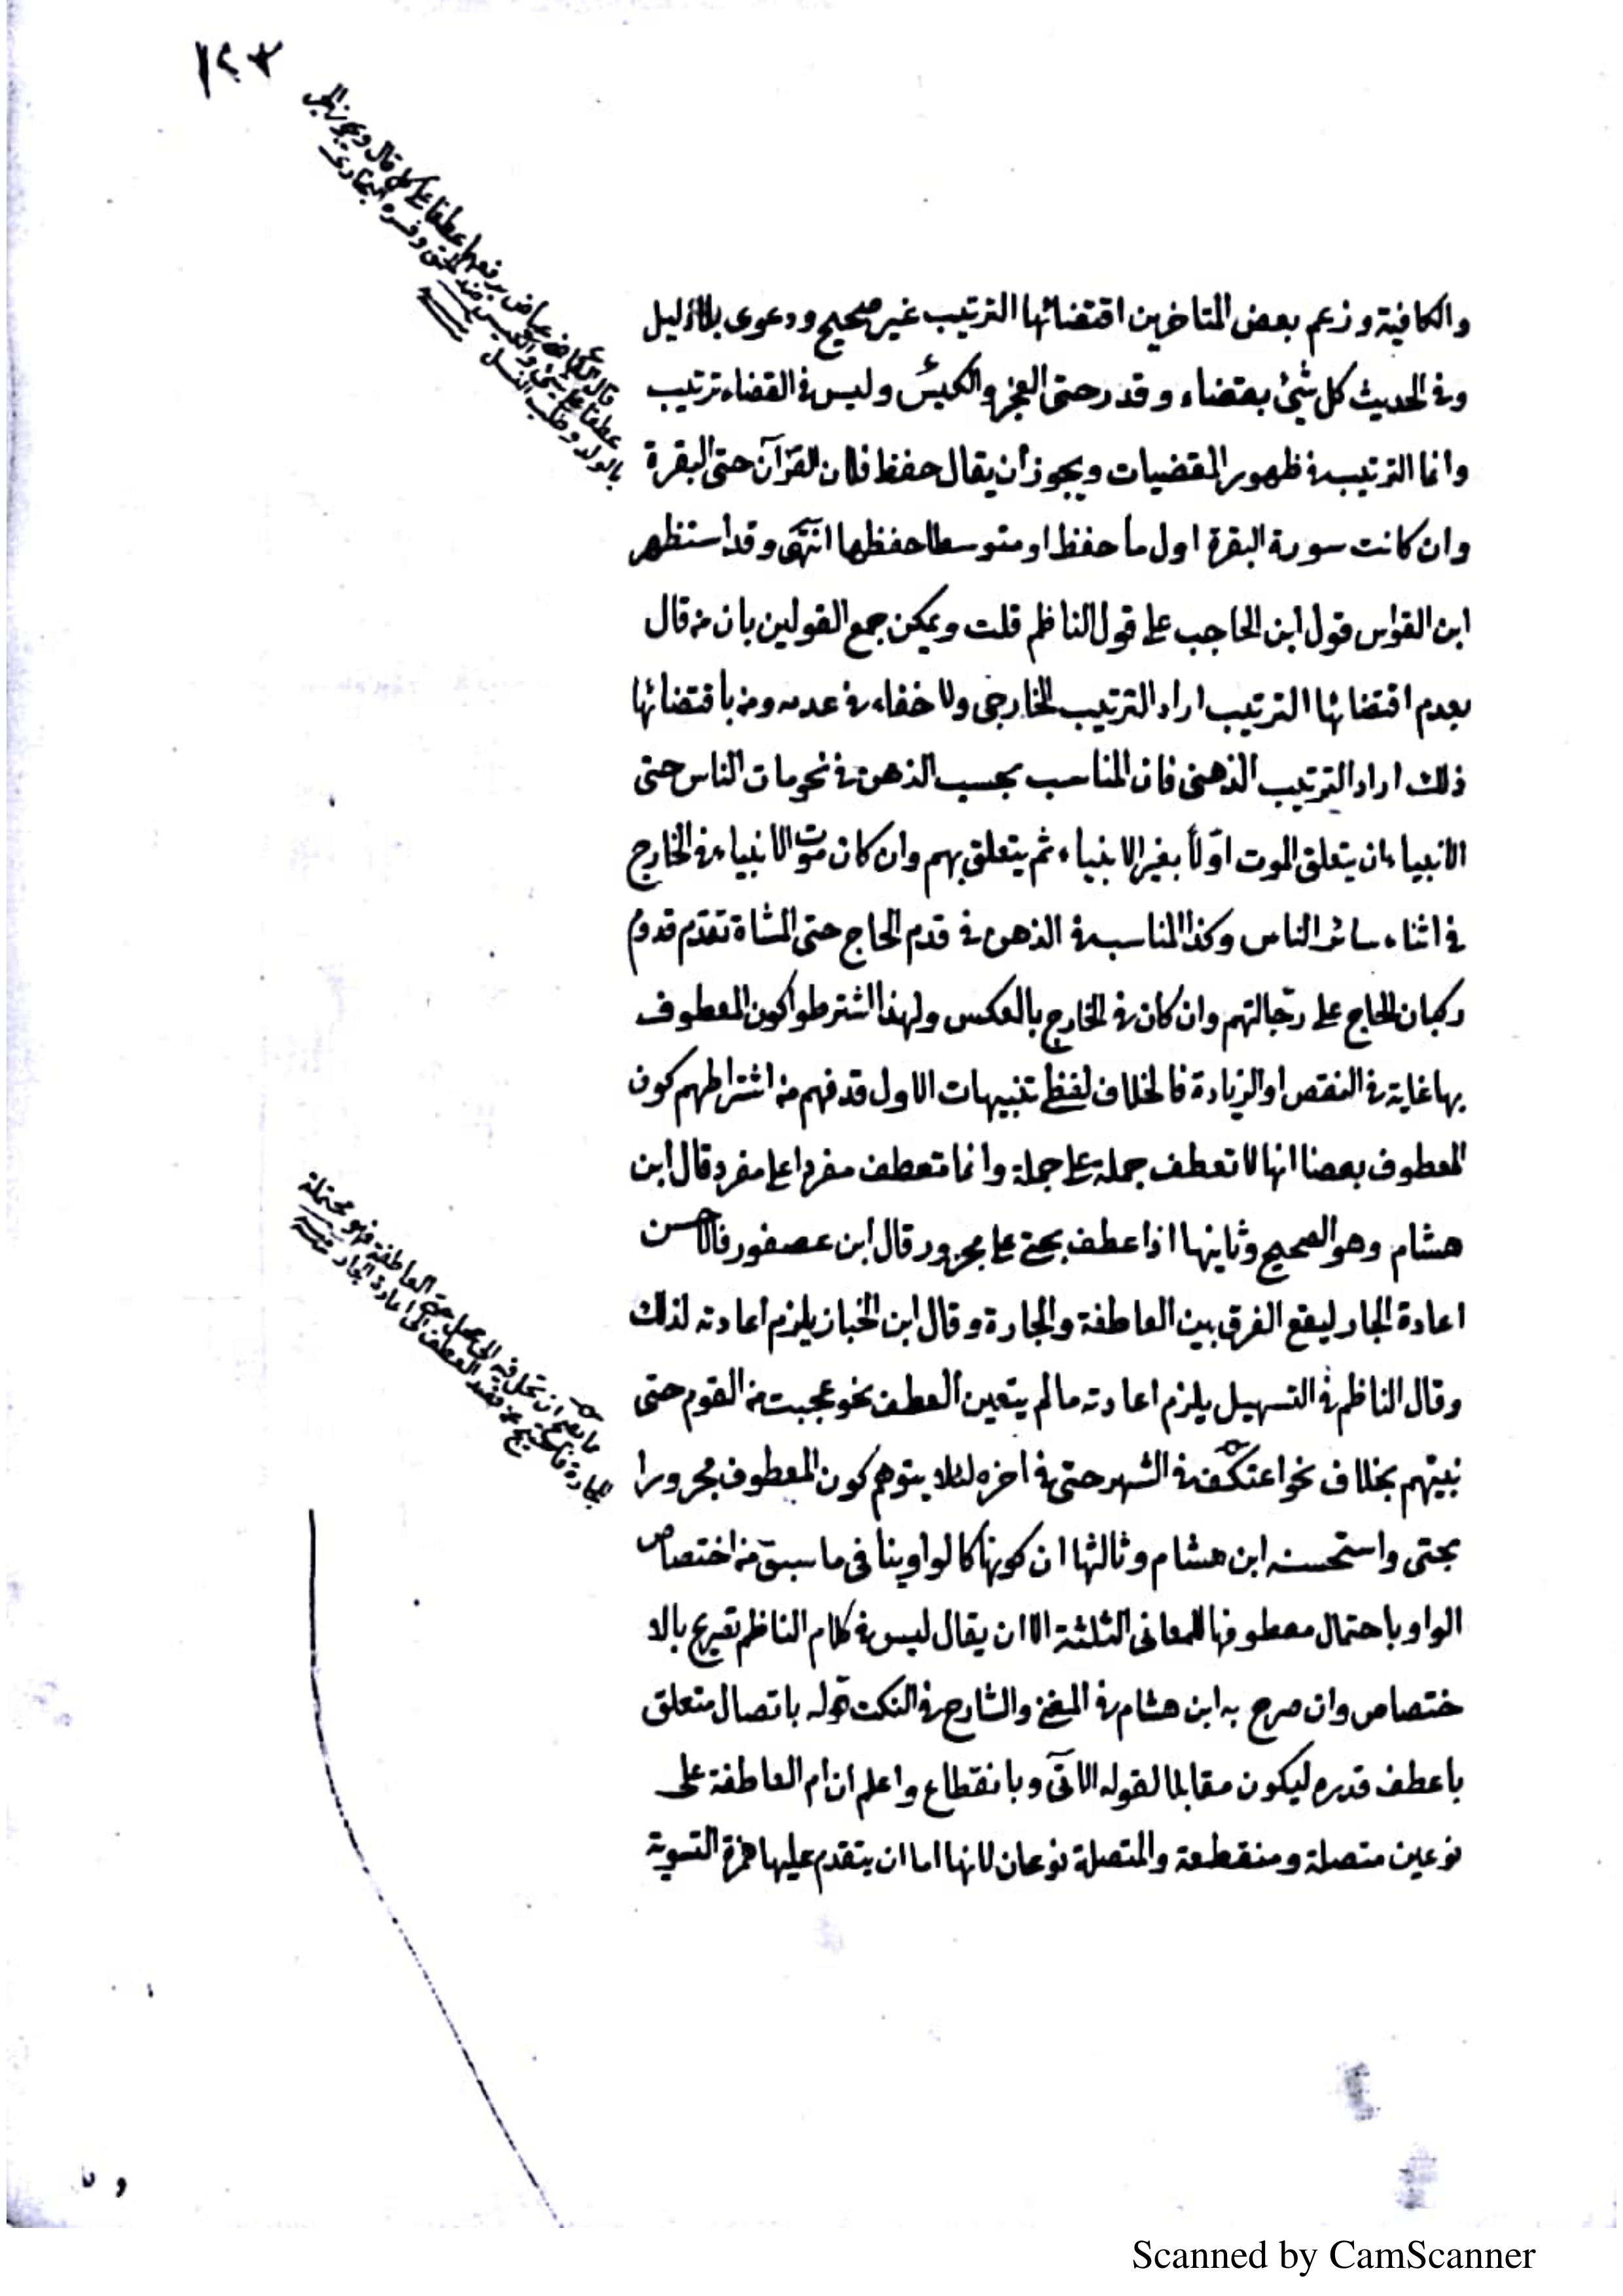 ١٢٣
قال القاضي عياض برفعهما عطفا على كل قال ويجوز الجر
عطفا على شئ والكيس ضد الحمق وفسره البخاري
بالولد وطلب النسل
والكافية وزعم بعض المتاخرين اقتضائها الترتيب غير صحيح ودعوى بلا دليل
وفي الحديث كل شئ بقضاء وقدر حتى العجز والكيس وليس في القضاء ترتيب
وانما الترتيب في ظهور المقضيات ويجوز أن يقال حفظ فلان القرآن حتى البقرة
وان كانت سورة البقرة اول ما حفظ او متوسطا حفظها انتهى وقد استظهر
ابن القواس قول ابن الحاجب على قول الناظم قلت ويمكن جمع القولين بان من قال
بعدم اقتضائها الترتيب اراد الترتيب الخارجي ولا خفاء في عدمه ومن باقتضائها
ذلك اراد الترتيب الذهني فان المناسب بحسب الذهن في نحو مات الناس حتى
الانبياء ان يتعلق الموت اوّلاً بغير الانبياء ثم يتعلق بهم وان كان موت الانبياء في الخارج
في اثناء سائر الناس وكذا المناسب في الذهن في قدم الحاج حتى المشاة تقدّم قدوم
ركبان الحاج على رجّالتهم وان كان في الخارج بالعكس ولهذا اشترطوا كون المعطوف
بها غاية في النقص او الزيادة فالخلاف لفظي تنبيهات الاول قد فهم من اشتراطهم كون
المعطوف بعضا انها لا تعطف جملة على جملة وانما تعطف مفردا على مفرد قال ابن
هشام وهو الصحيح وثانيها اذا عطف بحتى على مجرور قال ابن عصفور فالاحسن
اعادة الجار ليقع الفرق بين العاطفة والجارة وقال ابن الخباز يلزم اعادته لذلك
وقال الناظم في التسهيل يلزم اعادته ما لم يتعين العطف نحو عجبت من القوم حتى
بنيهم بخلاف نحو اعتكفت في الشهر حتى في اخره لئلا يتوهم كون المعطوف مجرورا
بحتى واستحسنه ابن هشام وثالثها ان كونها كالواو ينافي ما سبق من اختصاص
الواو باحتمال معطوفها للمعاني الثلثة الا ان يقال ليس في كلام الناظم تصريح بالا
ختصاص وان صرح به ابن هشام في المغني والشارح في النكت قوله باتصال متعلق
باعطف قدره ليكون مقابلا لقوله الآتي وبانقطاع واعلم ان ام العاطفة على
نوعين متصلة ومنقطعة والمتصلة نوعان لانها اما ان يتقدم عليها همزة التسوية
ما يصح ان تحل فيه الى محل حتى العاطفة فهو محتملة
للجارة فيحتاج عند قصد العطف الى اعادة الجار
Scanned by CamScanner